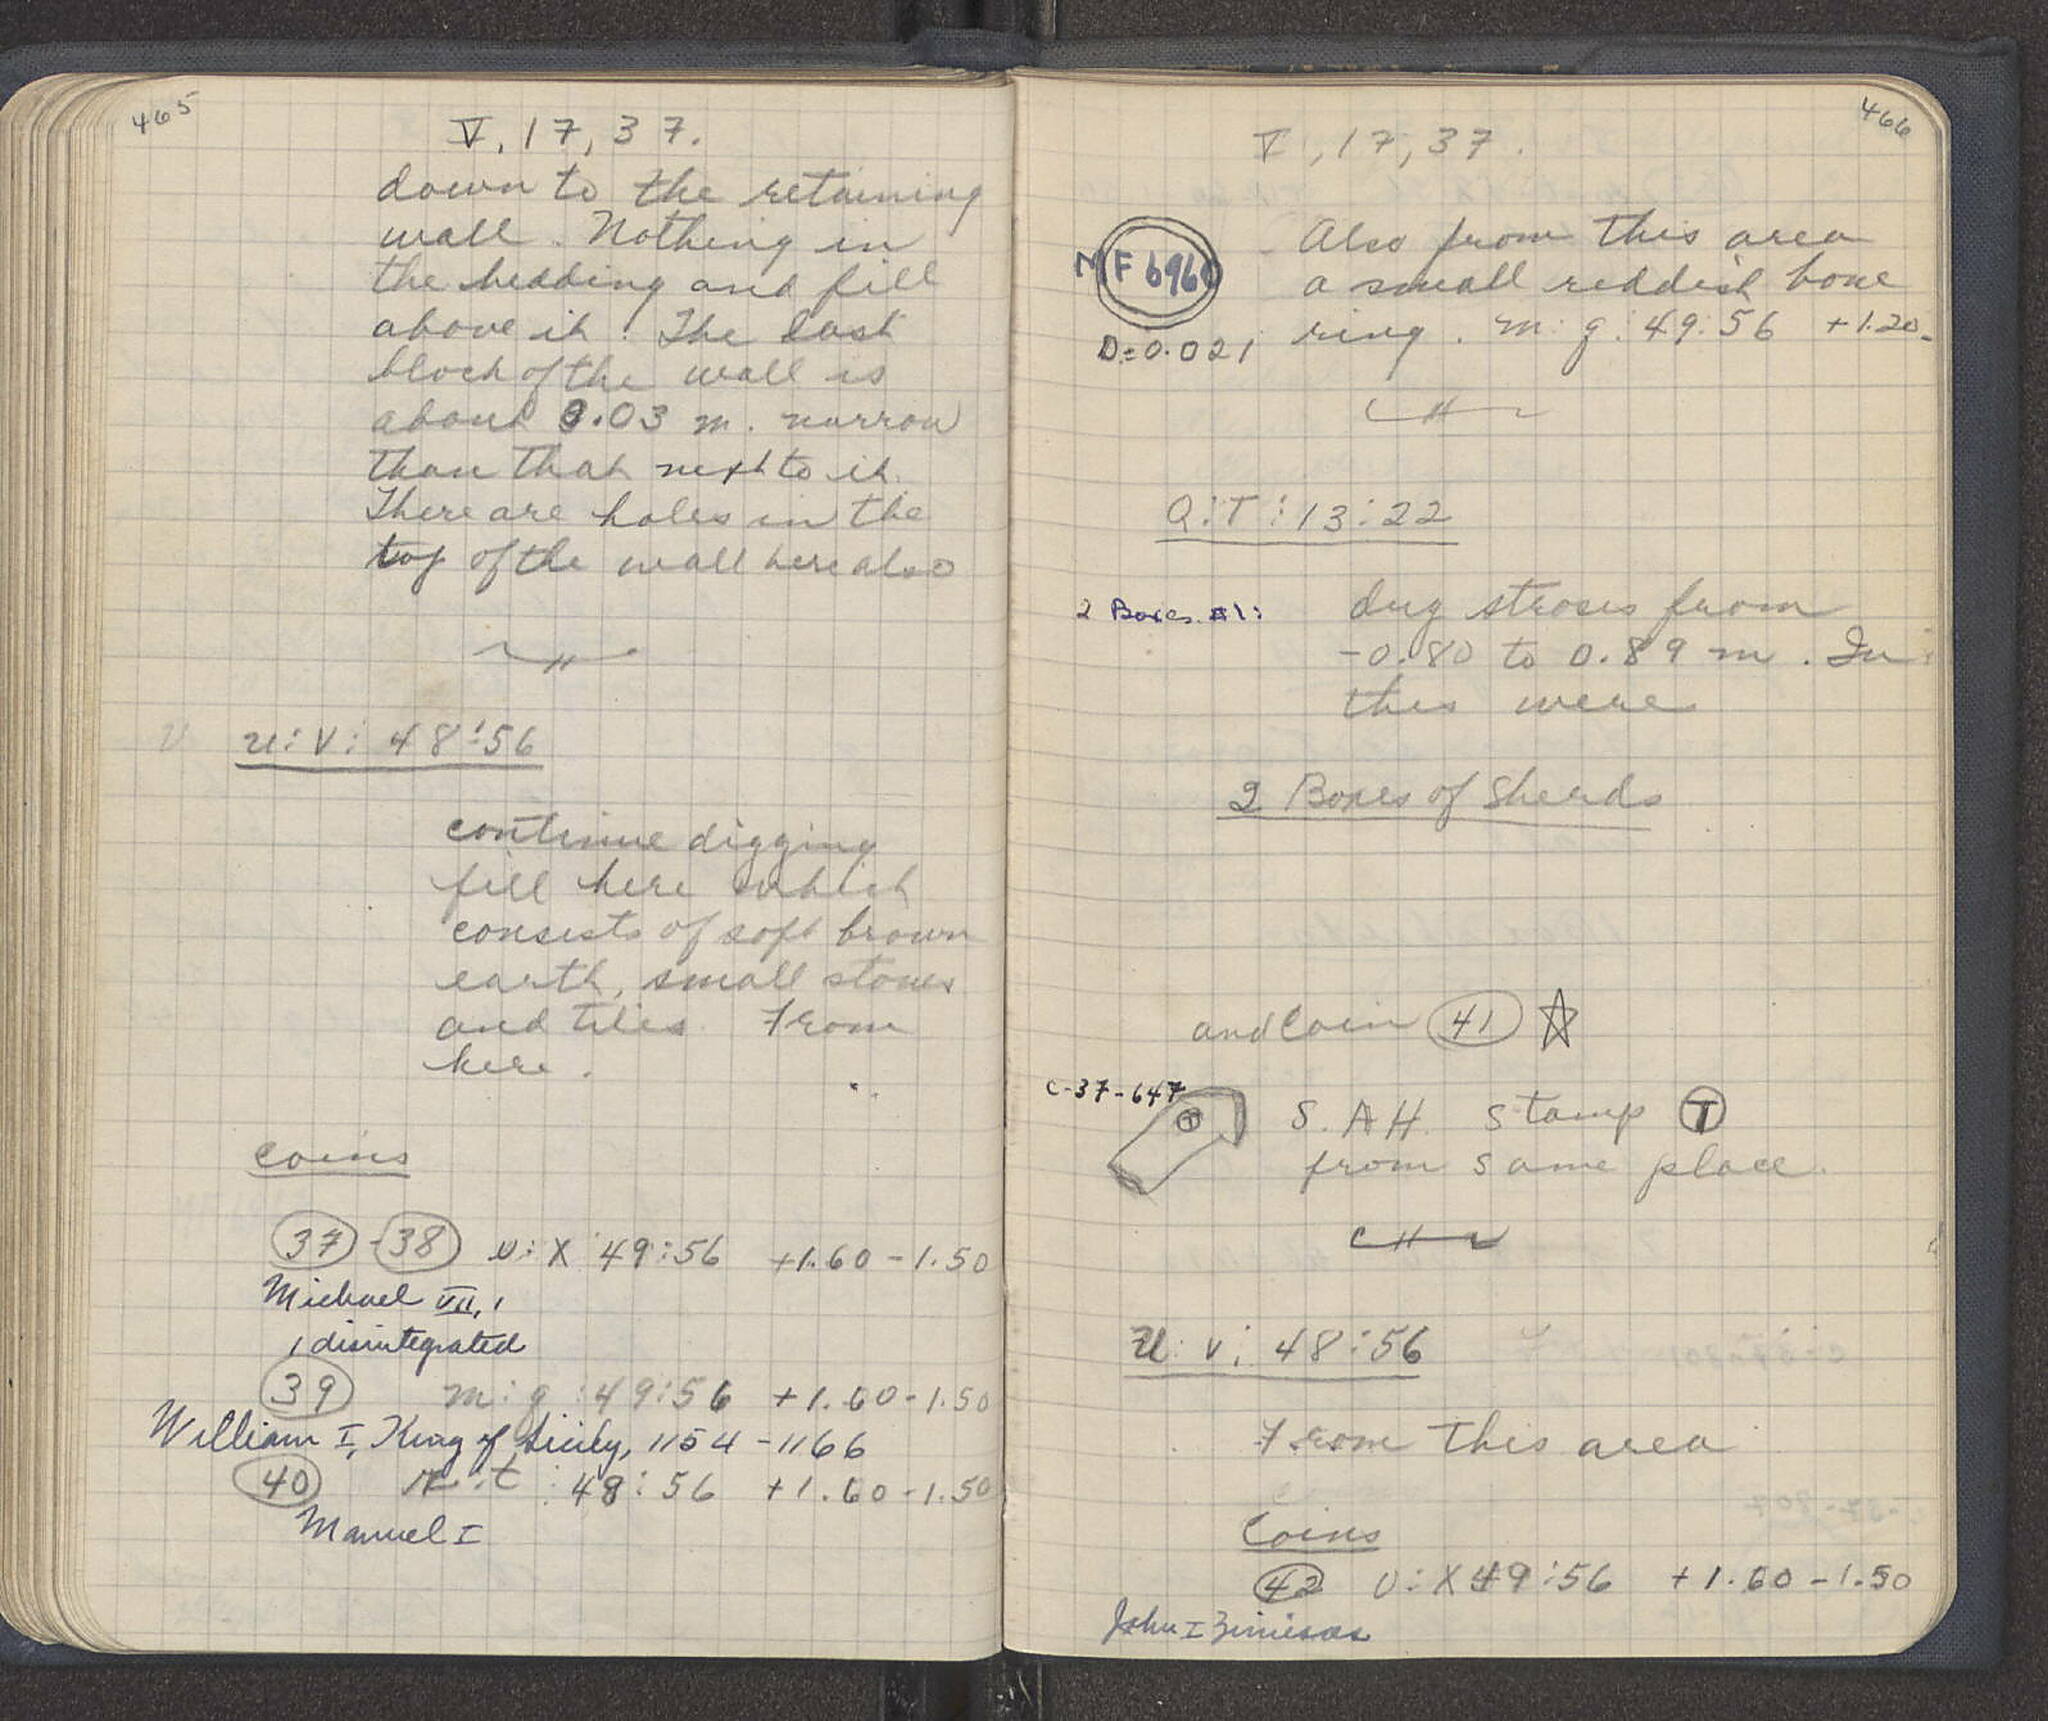 465
V, 17, 37.
down to the retaining
wall. Nothing in
the bedding and fill
above it. The last
block of the wall is
about 0.03 m. narrow
than that next to it.
There are holes in the
top of the wall here also
U:V: 48:56
continue digging
fill here which
consists of soft brown
earth, small stones
and tiles. From
here.
coins
37 - 38 U:X 49:56 +1.60-1.50
Michael VII, 1
1 disintegrated
39 m:g:49:56 +1.60-1.50
William I, King of Sicily, 1154-1166
40 :t:48:56 +1.60-1.50
Manuel I
466
V, 17, 37.
Also from this area
MF 696
a small reddish bone
D=0.021 ring. m:g:49:56 +1.20
Q:T:13:22
2 Boxes #1: dug stroses from
-0.80 to 0.89 m. In
this were
2 Boxes of Sherds
and Coin 41 ☆
C-37-647
T S.A.H. stamp T
from same place.
U:V: 48:56
From this area
Coins
42 U:X 49:56 +1.60-1.50
John I Zimisces